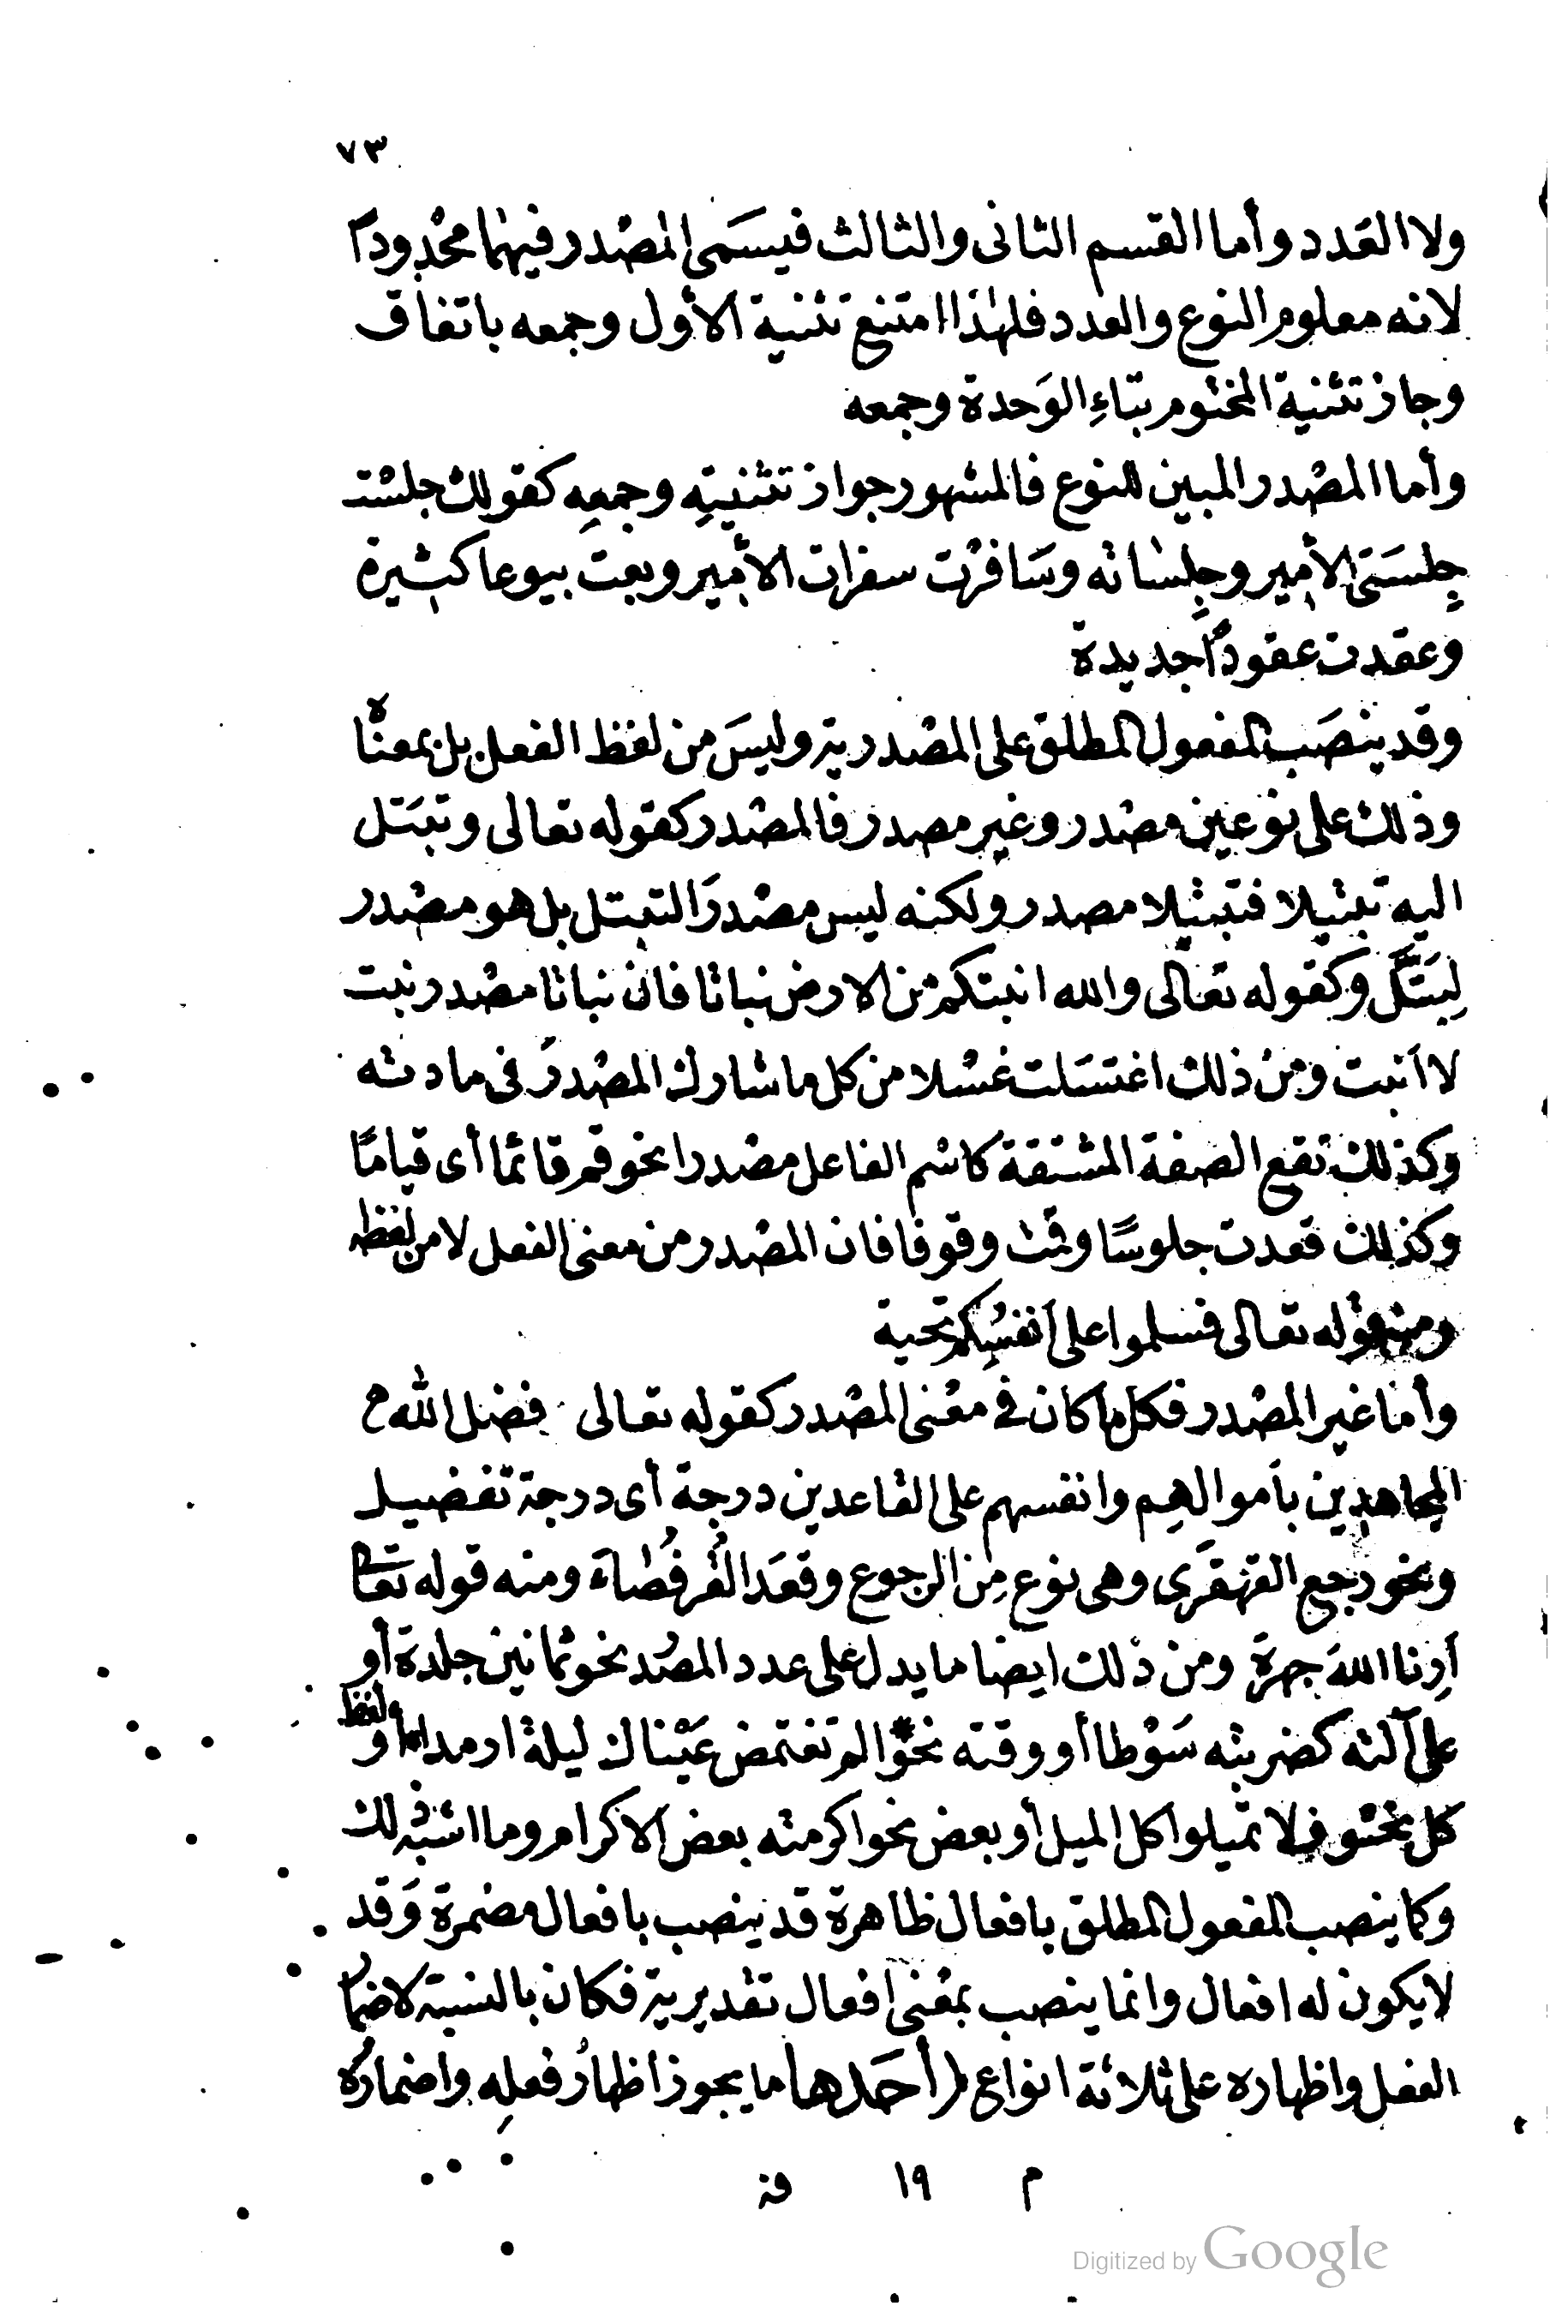 ٧٣
ولا العَدد وأما القسم الثانى والثالث فيسَمى المصْدر فيهمٰا محْدودًا
لانه معلوم النوع والعدد فلهٰذا امتنع تثنية الأول وجمعه باتفاق
وجاز تثنية المختوم بتاءِ الوَحدة وجمعه
وأما المصْدر المبين للنوع فالمشهور جواز تثنيتِه وجمعِه كقولك جلسْت
جِلسَتى الأمير وجِلسٰاته وسَافرْت سفرات الأمير وبعت بيوعا كثيرة
وعقدت عقودًا جديدة
وقد ينصَب المفعول المطلق على المصْدرية وليسَ من لفظ الفعل بل بمعناه
وذلك على نوعين مصْدر وغير مصدر فالمصْدر كقوله تعالى وتبَتل
اليه تبتيلا فتبتيلا مصدر ولكنه ليس مصْدرَ التبتل بل هو مصْدر
لِبَتَّل وكقوله تعالى والله انبتكم من الارض نباتا فان نباتا مصْدر نبت
لا أنبت ومِن ذلك اغتسَلت غسْلا من كل ما شارك المصْدرَ فى مادته
وكذلك تقع الصفة المشتقة كاسْم الفاعل مصْدرا نحو قم قائما أى قيامًا
وكذلك قعدت جلوسًا وقمْت وقوفا فان المصْدر من معنى الفعل لا من لفظه
ومنه قوله تعالى فسلموا على أنفسِكم تحية
وأما غير المصْدر فكل ما كان فى معْنى المصْدر كقوله تعالى فضل الله
المجاهدين بأموالهِم وانفسهم على القاعدين درجة أى درجة تفضيل
ونحو رجع القهقَرى وهى نوع مِن الرجوع وقعَد القُرفُصٰاءَ ومنه قوله تعالى
أرِنا اللهَ جهرة ومن ذلك ايضا ما يدل على عدد المصْدر نحو ثمانين جلدة أو
على آلته كضربته سَوْطا أو وقته نحو الم تغتمض عَيْناك ليلة ارمدا أو لفظ
كل نحو فلا تميلوا كل الميل أو بعض نحو اكرمته بعض الاكرام وما اشبه ذلك
وكما ينصب المفعول المطلق بافعال ظاهرة قد ينصب بافعال مضمرة وَقد
لا يكون له افعال وانما ينصب بمعْنى افعال تقديرية فكان بالنسبة لاضمار
الفعل واظهاره على ثلاثة انواع (أحَدها ما يجوز اظهارُ فعلِه واضمارُه
م ١٩ فـ
Digitized by Google